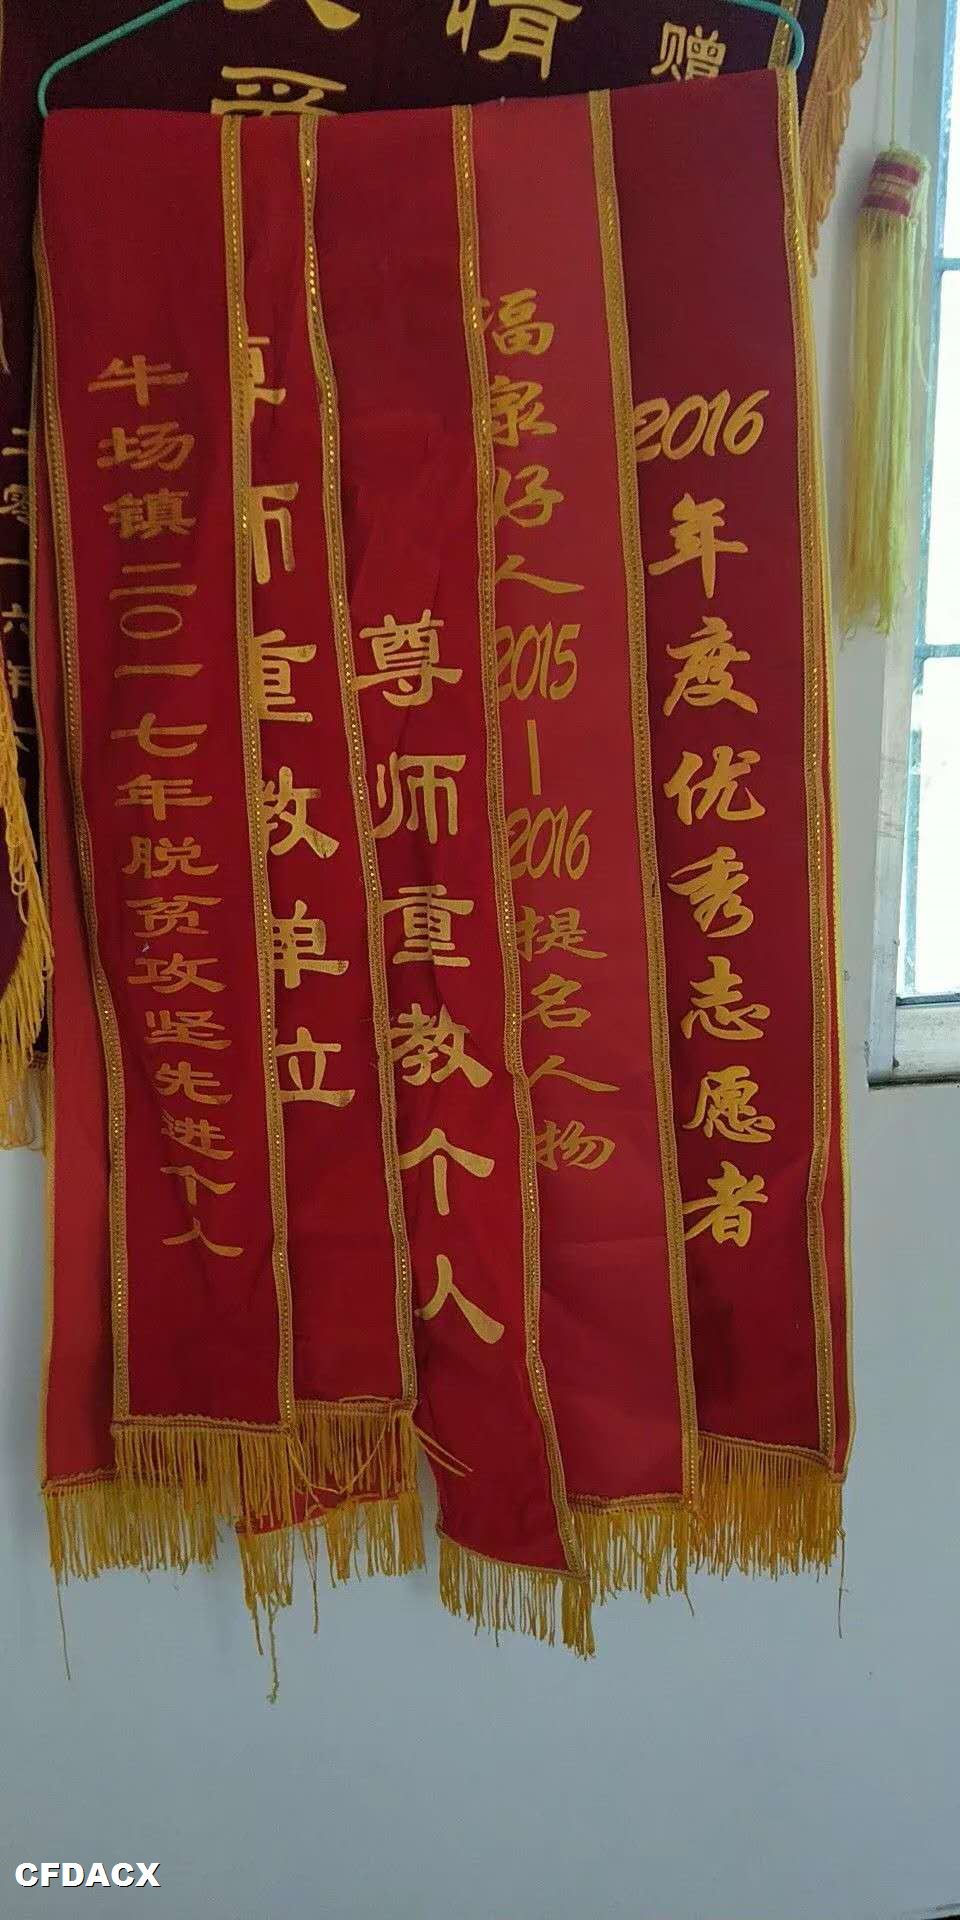 情
赠
牛场镇二〇一七年脱贫攻坚先进个人
师重教单位
尊师重教个人
福泉好人2015—2016提名人物
2016年度优秀志愿者
二零一六年
CFDACX